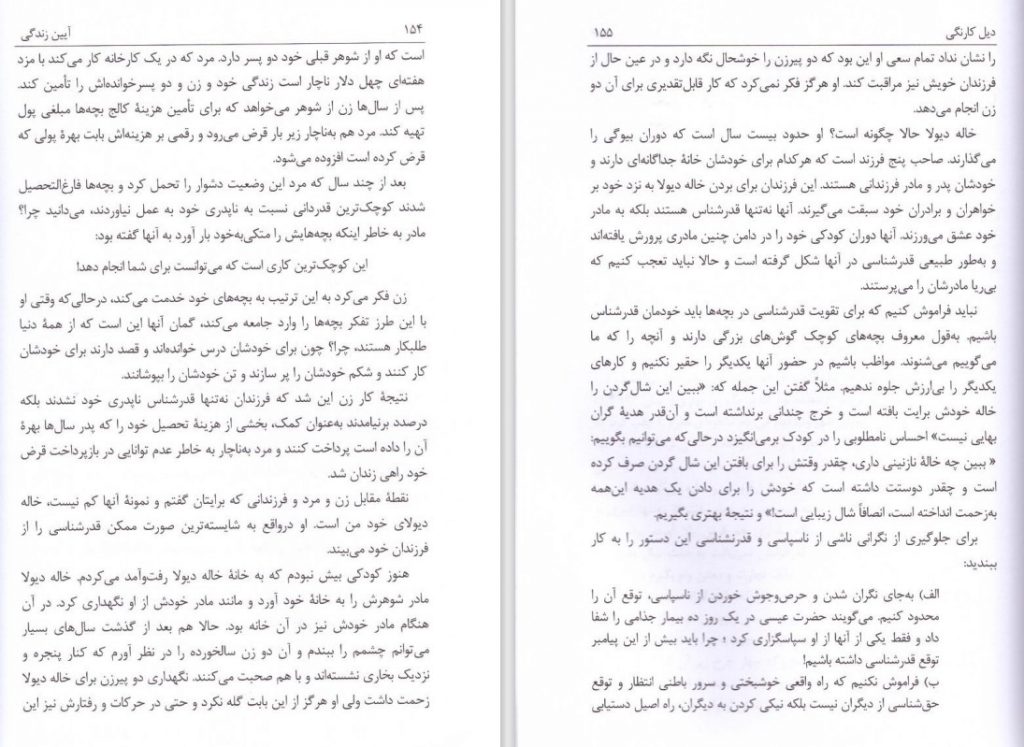 ۱۵۴ آیین زندگی
است که او از شوهر قبلی خود دو پسر دارد. مرد که در یک کارخانه کار می‌کند با مزد
هفته‌ای چهل دلار ناچار است زندگی خود و زن و دو پسرخوانده‌اش را تأمین کند.
پس از سال‌ها زن از شوهر می‌خواهد که برای تأمین هزینهٔ کالج بچه‌ها مبلغی پول
تهیه کند. مرد هم به‌ناچار زیر بار قرض می‌رود و رقمی بر هزینه‌اش بابت بهرهٔ پولی که
قرض کرده است افزوده می‌شود.
بعد از چند سال که مرد این وضعیت دشوار را تحمل کرد و بچه‌ها فارغ‌التحصیل
شدند کوچک‌ترین قدردانی نسبت به ناپدری خود به عمل نیاوردند، می‌دانید چرا؟
مادر به خاطر اینکه بچه‌هایش را متکی‌به‌خود بار آورد به آنها گفته بود:
این کوچک‌ترین کاری است که می‌توانست برای شما انجام دهد!
زن فکر می‌کرد به این ترتیب به بچه‌های خود خدمت می‌کند، درحالی‌که وقتی او
با این طرز تفکر بچه‌ها را وارد جامعه می‌کند، گمان آنها این است که از همهٔ دنیا
طلبکار هستند، چرا؟ چون برای خودشان درس خوانده‌اند و قصد دارند برای خودشان
کار کنند و شکم خودشان را پر سازند و تن خودشان را بپوشانند.
نتیجهٔ کار زن این شد که فرزندان نه‌تنها قدرشناس ناپدری خود نشدند بلکه
درصدد برنیامدند به‌عنوان کمک، بخشی از هزینهٔ تحصیل خود را که پدر سال‌ها بهرهٔ
آن را داده است پرداخت کنند و مرد به‌ناچار به خاطر عدم توانایی در بازپرداخت قرض
خود راهی زندان شد.
نقطهٔ مقابل زن و مرد و فرزندانی که برایتان گفتم و نمونهٔ آنها کم نیست، خاله
دیولای خود من است. او درواقع به شایسته‌ترین صورت ممکن قدرشناسی را از
فرزندان خود می‌بیند.
هنوز کودکی بیش نبودم که به خانهٔ خاله دیولا رفت‌وآمد می‌کردم. خاله دیولا
مادر شوهرش را به خانهٔ خود آورد و مانند مادر خودش از او نگهداری کرد. در آن
هنگام مادر خودش نیز در آن خانه بود. حالا هم بعد از گذشت سال‌های بسیار
می‌توانم چشمم را ببندم و آن دو زن سالخورده را در نظر آورم که کنار پنجره و
نزدیک بخاری نشسته‌اند و با هم صحبت می‌کنند. نگهداری دو پیرزن برای خاله دیولا
زحمت داشت ولی او هرگز از این بابت گله نکرد و حتی در حرکات و رفتارش نیز این
دیل کارنگی ۱۵۵
را نشان نداد تمام سعی او این بود که دو پیرزن را خوشحال نگه دارد و در عین حال از
فرزندان خویش نیز مراقبت کند. او هرگز فکر نمی‌کرد که کار قابل‌تقدیری برای آن دو
زن انجام می‌دهد.
خاله دیولا حالا چگونه است؟ او حدود بیست سال است که دوران بیوگی را
می‌گذارند. صاحب پنج فرزند است که هرکدام برای خودشان خانهٔ جداگانه‌ای دارند و
خودشان پدر و مادر فرزندانی هستند. این فرزندان برای بردن خاله دیولا به نزد خود بر
خواهران و برادران خود سبقت می‌گیرند. آنها نه‌تنها قدرشناس هستند بلکه به مادر
خود عشق می‌ورزند. آنها دوران کودکی خود را در دامن چنین مادری پرورش یافته‌اند
و به‌طور طبیعی قدرشناسی در آنها شکل گرفته است و حالا نباید تعجب کنیم که
بی‌ریا مادرشان را می‌پرستند.
نباید فراموش کنیم که برای تقویت قدرشناسی در بچه‌ها باید خودمان قدرشناس
باشیم. به‌قول معروف بچه‌های کوچک گوش‌های بزرگی دارند و آنچه را که ما
می‌گوییم می‌شنوند. مواظب باشیم در حضور آنها یکدیگر را حقیر نکنیم و کارهای
یکدیگر را بی‌ارزش جلوه ندهیم. مثلاً گفتن این جمله که: «ببین این شال‌گردن را
خاله خودش برایت بافته است و خرج چندانی برنداشته است و آن‌قدر هدیهٔ گران
بهایی نیست» احساس نامطلوبی را در کودک برمی‌انگیزد درحالی‌که می‌توانیم بگوییم:
« ببین چه خالهٔ نازنینی داری، چقدر وقتش را برای بافتن این شال گردن صرف کرده
است و چقدر دوستت داشته است که خودش را برای دادن یک هدیه این‌همه
به‌زحمت انداخته است، انصافاً شال زیبایی است!» و نتیجهٔ بهتری بگیریم.
برای جلوگیری از نگرانی ناشی از ناسپاسی و قدرنشناسی این دستور را به کار
ببندید:
الف) به‌جای نگران شدن و حرص‌وجوش خوردن از ناسپاسی، توقع آن را
محدود کنیم. می‌گویند حضرت عیسی در یک روز ده بیمار جذامی را شفا
داد و فقط یکی از آنها از او سپاسگزاری کرد ؛ چرا باید بیش از این پیامبر
توقع قدرشناسی داشته باشیم!
ب) فراموش نکنیم که راه واقعی خوشبختی و سرور باطنی انتظار و توقع
حق‌شناسی از دیگران نیست بلکه نیکی کردن به دیگران، راه اصیل دستیابی